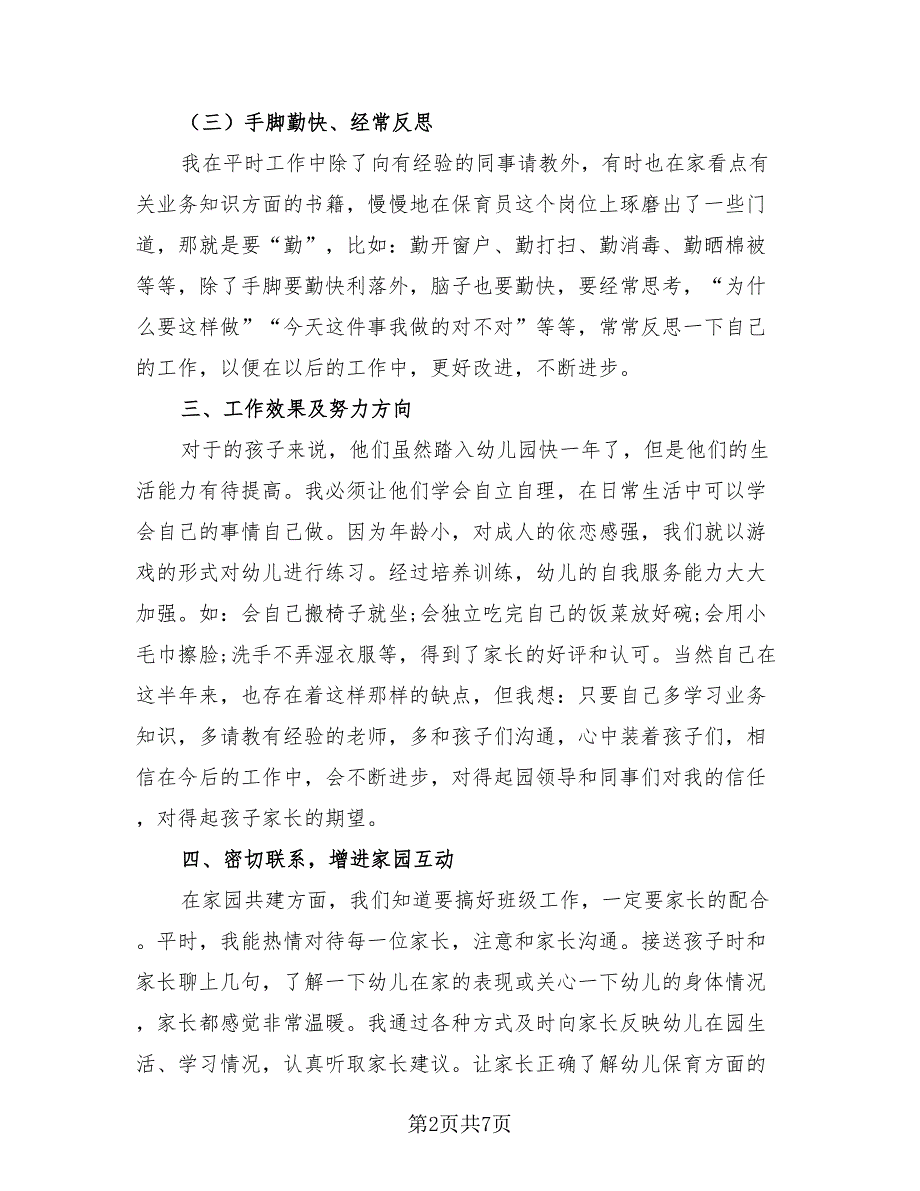 （三）手脚勤快、经常反思
我在平时工作中除了向有经验的同事请教外，有时也在家看点有
关业务知识方面的书籍，慢慢地在保育员这个岗位上琢磨出了一些门
道，那就是要“勤”，比如：勤开窗户、勤打扫、勤消毒、勤晒棉被
等等，除了手脚要勤快利落外，脑子也要勤快，要经常思考，“为什
么要这样做”“今天这件事我做的对不对”等等，常常反思一下自己
的工作，以便在以后的工作中，更好改进，不断进步。
三、工作效果及努力方向
对于的孩子来说，他们虽然踏入幼儿园快一年了，但是他们的生
活能力有待提高。我必须让他们学会自立自理，在日常生活中可以学
会自己的事情自己做。因为年龄小，对成人的依恋感强，我们就以游
戏的形式对幼儿进行练习。经过培养训练，幼儿的自我服务能力大大
加强。如：会自己搬椅子就坐;会独立吃完自己的饭菜放好碗;会用小
毛巾擦脸;洗手不弄湿衣服等，得到了家长的好评和认可。当然自己在
这半年来，也存在着这样那样的缺点，但我想：只要自己多学习业务
知识，多请教有经验的老师，多和孩子们沟通，心中装着孩子们，相
信在今后的工作中，会不断进步，对得起园领导和同事们对我的信任
，对得起孩子家长的期望。
四、密切联系，增进家园互动
在家园共建方面，我们知道要搞好班级工作，一定要家长的配合
。平时，我能热情对待每一位家长，注意和家长沟通。接送孩子时和
家长聊上几句，了解一下幼儿在家的表现或关心一下幼儿的身体情况
，家长都感觉非常温暖。我通过各种方式及时向家长反映幼儿在园生
活、学习情况，认真听取家长建议。让家长正确了解幼儿保育方面的
第2页共7页